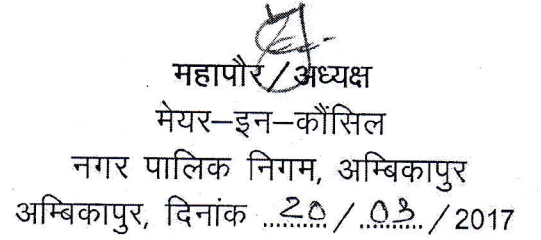 महापौर/अध्यक्ष
मेयर–इन–कौंसिल
नगर पालिक निगम, अम्बिकापुर
अम्बिकापुर, दिनांक ..20../..03../2017